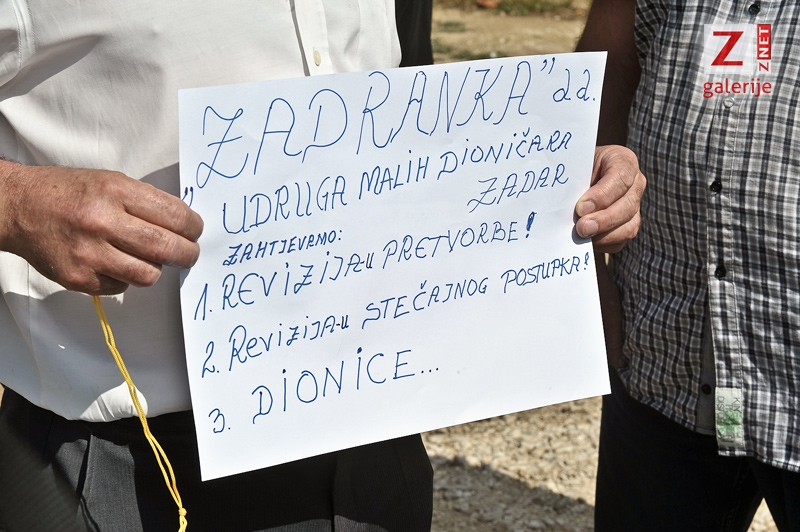 „ZADRANKA” d.d.
UDRUGA MALIH DIONIČARA
ZADAR
ZAHTJEVAMO:
1. REVIZIJA-u PRETVORBE!
2. REVIZIJA-u STEČAJNOG POSTUPKA!
3. DIONICE...
Z
ZNET
galerije